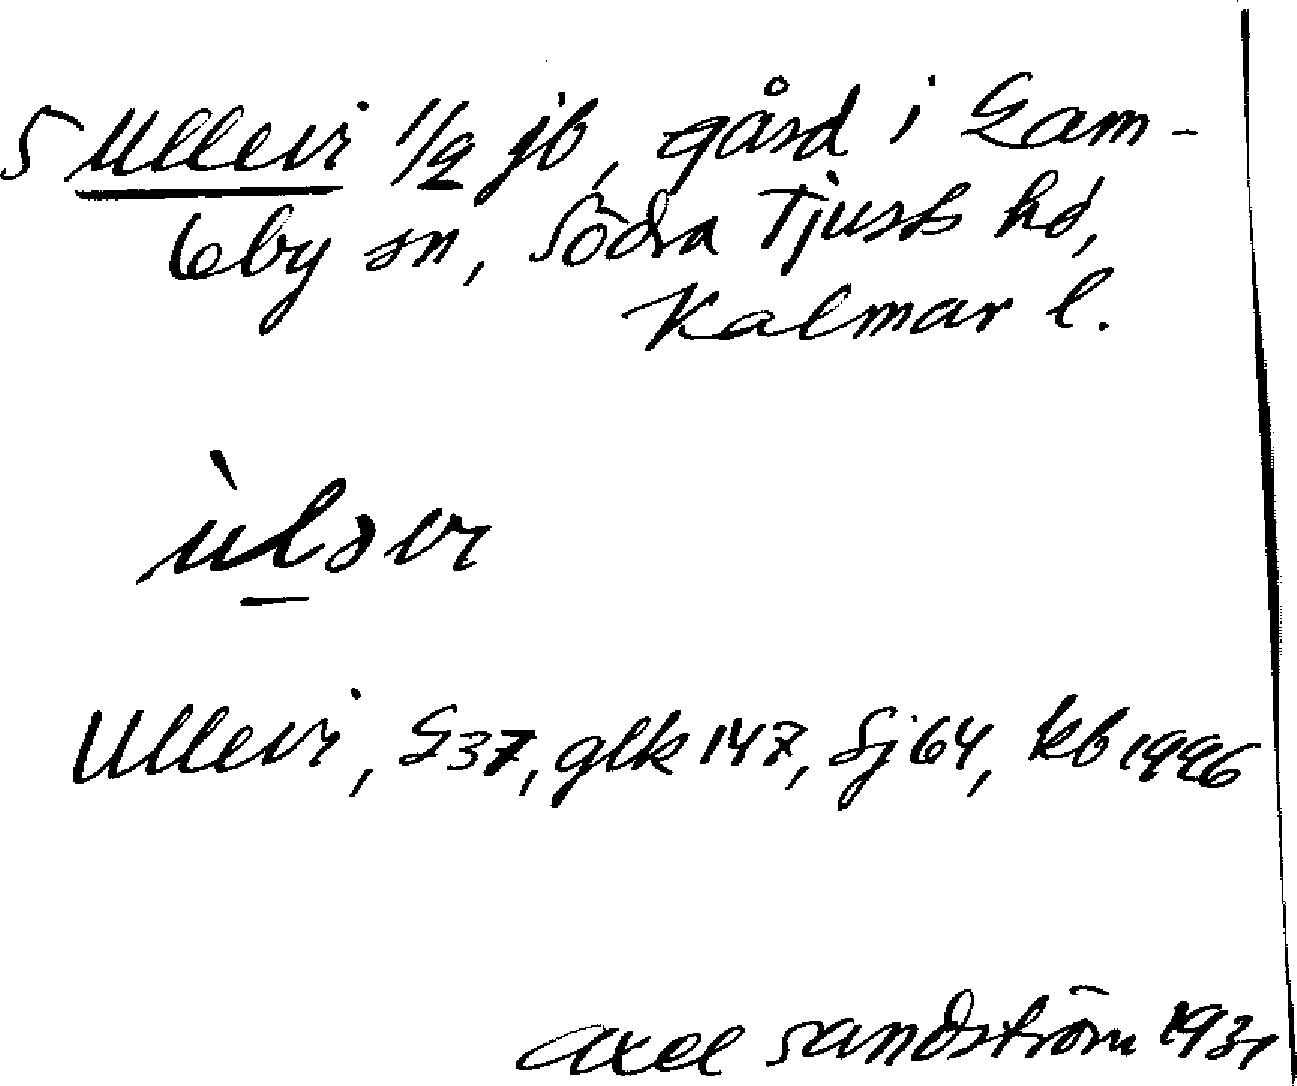 5 Ullevi 1/2 jb, gård i Gam-
leby sn, Södra Tjusts hd,
Kalmar l.
ùləvi
Ullevi, G37, glk 147, Sj 64, kb 1996
Axel Sandström 1931